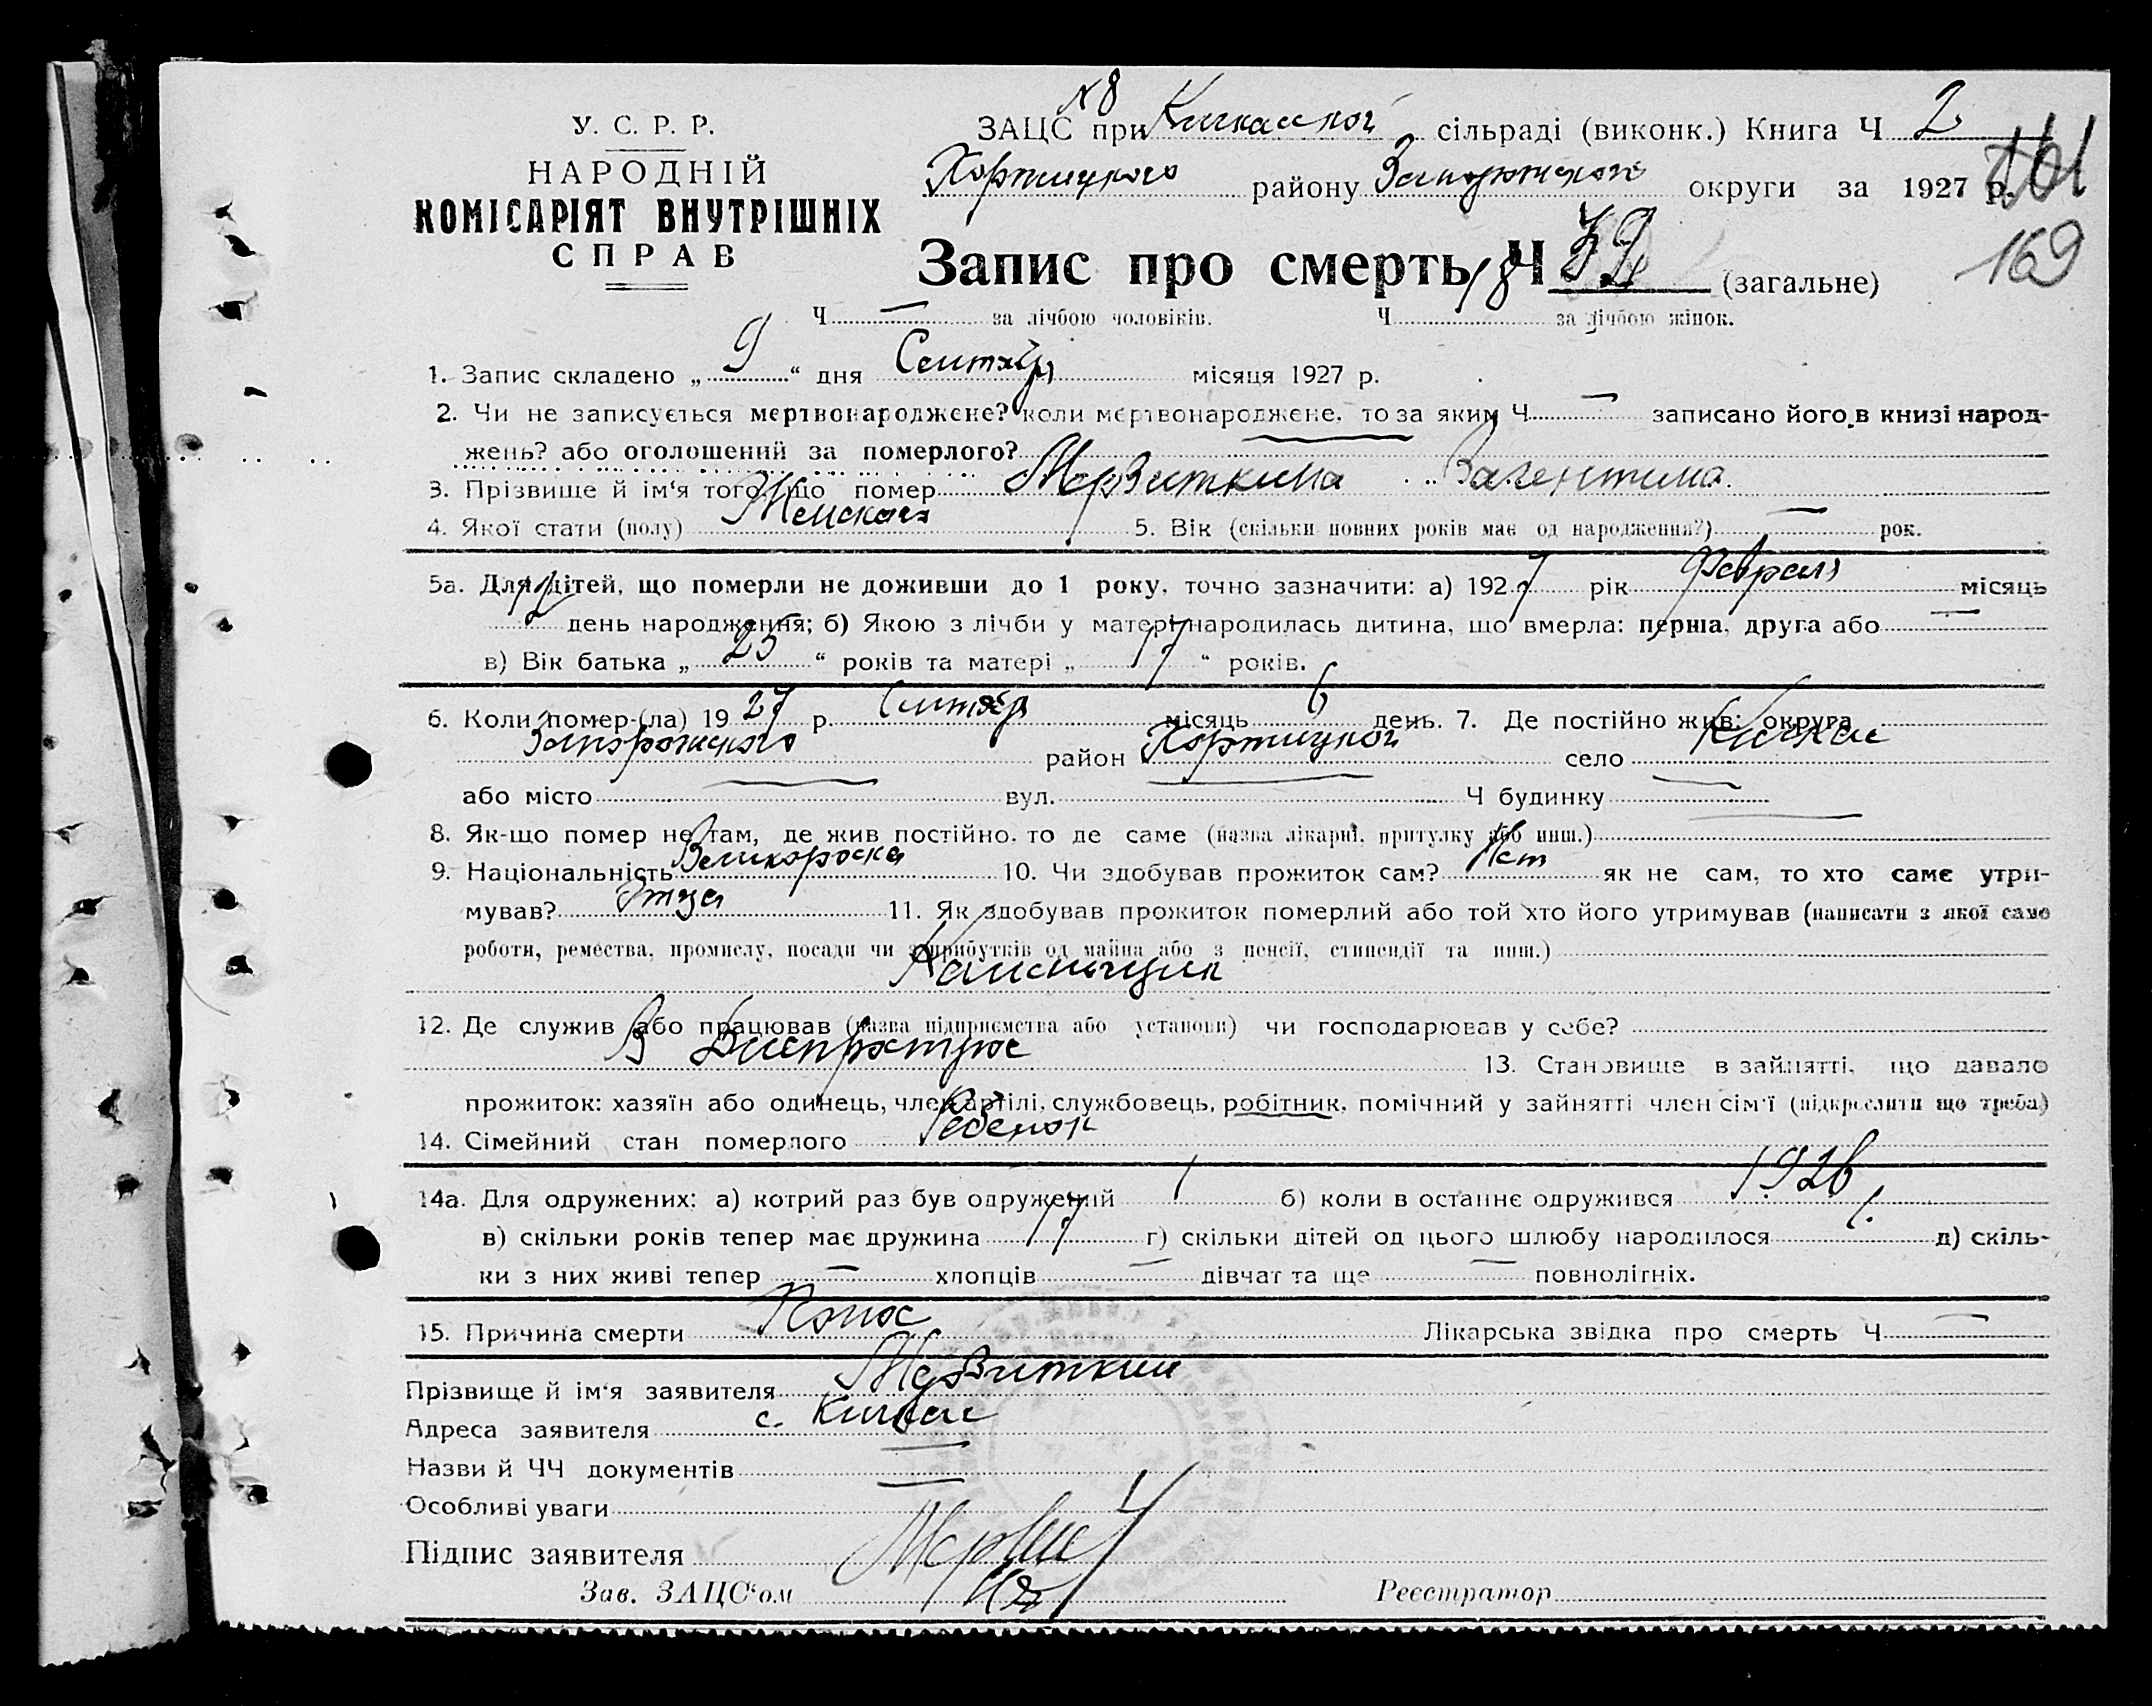 У. С. Р. Р.
НАРОДНІЙ
КОМІСАРІЯТ ВНУТРІШНІХ
СПРАВ
N 8
ЗАЦС при Кичкасской сільраді (виконк.) Книга Ч 2
Хортицкого району Запорожского округи за 1927 р.
161
169
Запис про смерть Ч 39 (загальне)
18
Ч — за лічбою чоловіків. Ч за лічбою жінок.
1. Запис складено „ 9 “ дня Сентябр місяця 1927 р.
2. Чи не записується мертвонароджене? коли мертвонароджене, то за яким Ч — записано його в книзі народ-
жень? або оголошений за померлого?
3. Прізвище й ім‘я того, що помер Мерзиткина Валентина
4. Якої стати (полу) Женская 5. Вік (скільки повних років має од народження?) — рок.
5а. Для дітей, що померли не доживши до 1 року, точно зазначити: а) 1927 рік Февраля місяць
12 день народження; б) Якою з лічби у матері народилась дитина, що вмерла: перша, друга або —
в) Вік батька „ 25 “ років та матері „ 17 “ років.
6. Коли помер-(ла) 1927 р. Сентябр місяць 6 день. 7. Де постійно жив: округа
Запорожского район Хортицкой село Кичкас
або місто — вул. — Ч будинку —
8. Як-що помер не там, де жив постійно, то де саме (назва лікарні, притулку або инш.) —
9. Національність Великороска 10. Чи здобував прожиток сам? Нет як не сам, то хто саме утри-
мував? Отца 11. Як здобував прожиток померлий або той хто його утримував (написати з якої саме
роботи, ремества, промислу, посади чи з прибутків од майна або з пенсії, стипендії та инш.)
Каменьщик
12. Де служив або працював (назва підприємства або установи) чи господарював у себе?
В Днепрострое 13. Становище в зайнятті, що давало
прожиток: хазяїн або одинець, член артілі, службовець, робітник, помічний у зайнятті член сім‘ї (підкреслити що треба)
14. Сімейний стан померлого Ребенок
14а. Для одружених: а) котрий раз був одружений 1 б) коли в останнє одружився 1926
в) скільки років тепер має дружина 17 г) скільки дітей од цього шлюбу народилося 1. д) скіль-
ки з них живі тепер — хлопців — дівчат та ще — повнолітніх.
15. Причина смерти Понос Лікарська звідка про смерть Ч —
Прізвище й ім‘я заявителя Мерзиткин
Адреса заявителя с. Кичкас
Назви й ЧЧ документів —
Особливі уваги —
Підпис заявителя
Зав. ЗАЦС‘ом Реєстратор